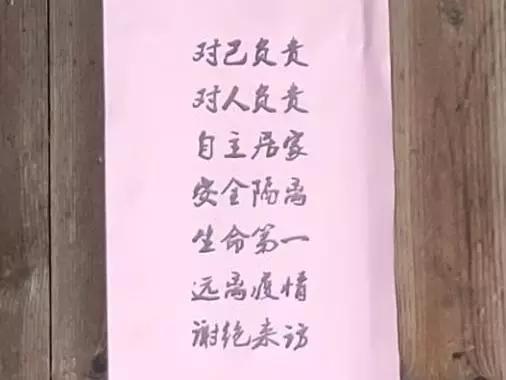 对己负责
对人负责
自主居家
安全隔离
生命第一
远离疫情
谢绝来访